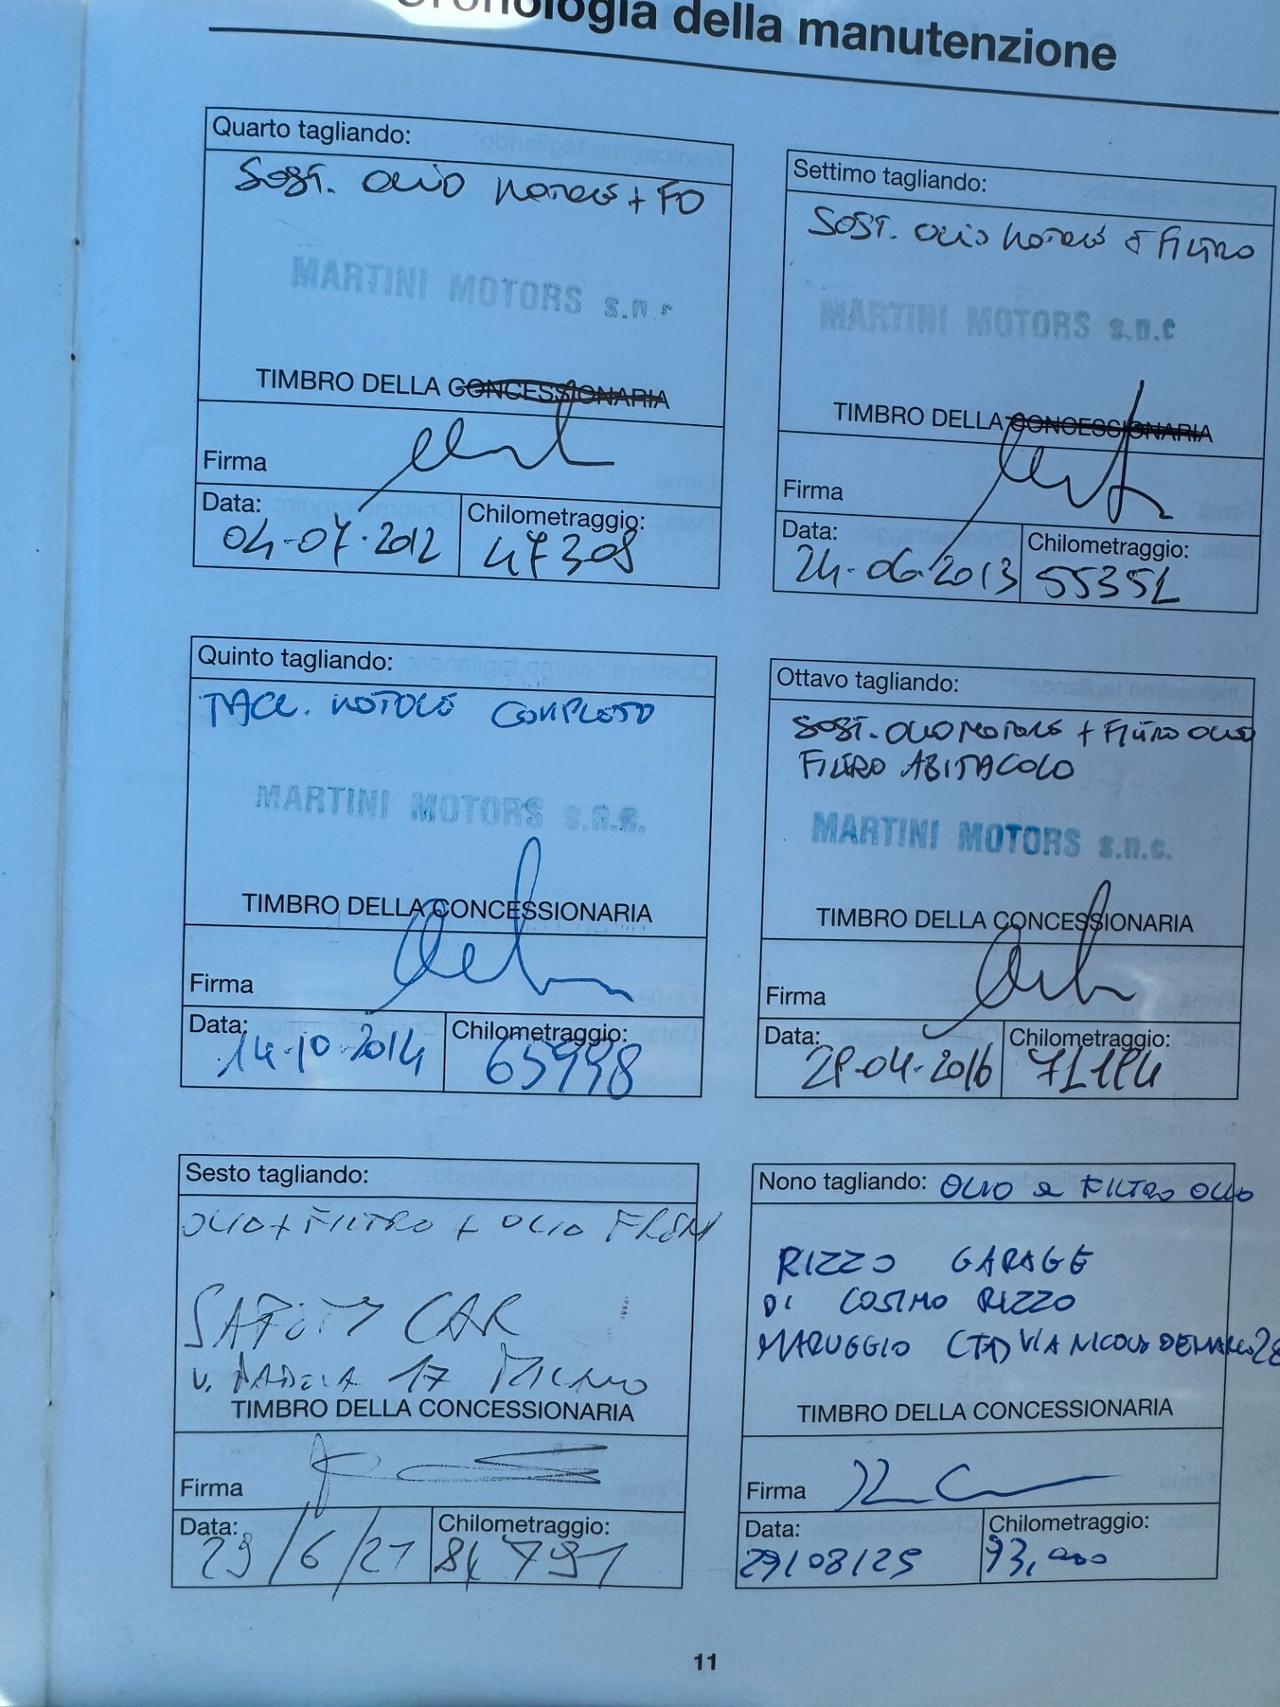 Cronologia della manutenzione
Quarto tagliando:
SOST. OLIO MOTORE + FO
MARTINI MOTORS s.n.c
TIMBRO DELLA CONCESSIONARIA
Firma
Data:
04-07-2012
Chilometraggio:
47308
Quinto tagliando:
TAGL. MOTORE COMPLETO
MARTINI MOTORS s.n.c.
TIMBRO DELLA CONCESSIONARIA
Firma
Data:
14-10-2014
Chilometraggio:
65998
Sesto tagliando:
OLIO + FILTRO + OLIO FRENI
SAFETY CAR
V. 17 MILANO
TIMBRO DELLA CONCESSIONARIA
Firma
Data:
29/6/21
Chilometraggio:
84791
Settimo tagliando:
SOST. OLIO MOTORE E FILTRO
MARTINI MOTORS s.n.c
TIMBRO DELLA CONCESSIONARIA
Firma
Data:
24-06-2013
Chilometraggio:
55351
Ottavo tagliando:
SOST. OLIO MOTORE + FILTRO OLIO
FILTRO ABITACOLO
MARTINI MOTORS s.n.c.
TIMBRO DELLA CONCESSIONARIA
Firma
Data:
28-04-2016
Chilometraggio:
71184
Nono tagliando: OLIO e FILTRO OLIO
RIZZO GARAGE
DI COSIMO RIZZO
MARUGGIO (TA) VIA NICOLA DEMARCO 28
TIMBRO DELLA CONCESSIONARIA
Firma
Data:
29/08/25
Chilometraggio:
93,000
11